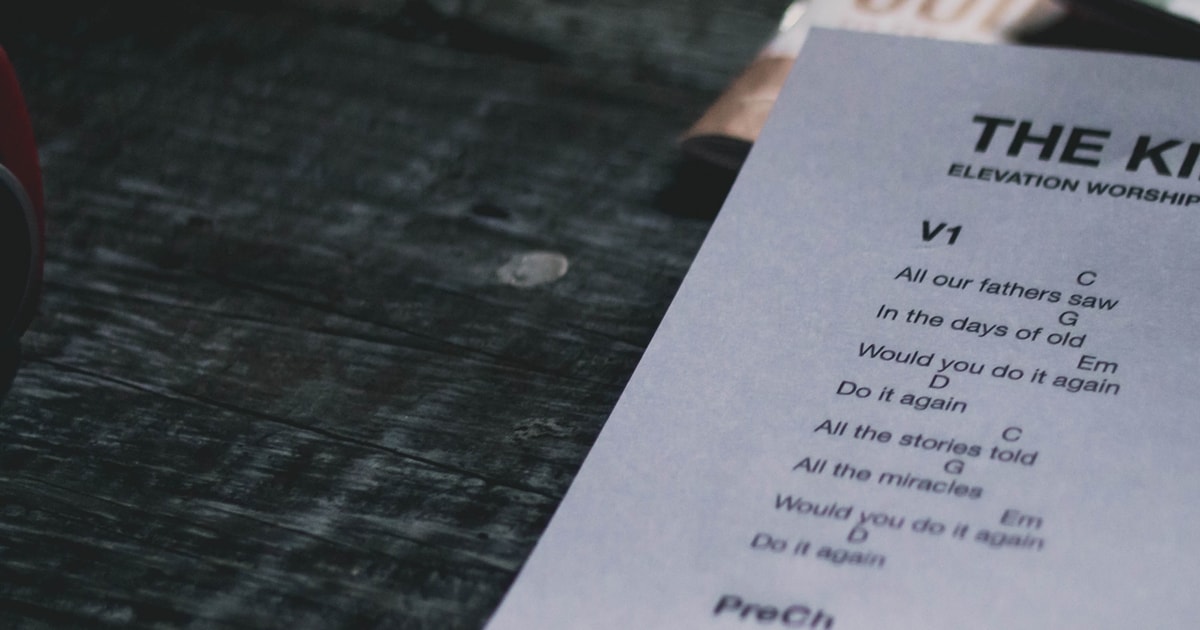 THE KI
ELEVATION WORSHIP
V1
C
All our fathers saw
G
In the days of old
Em
Would you do it again
D
Do it again
C
All the stories told
G
All the miracles
Em
Would you do it again
D
Do it again
PreCh